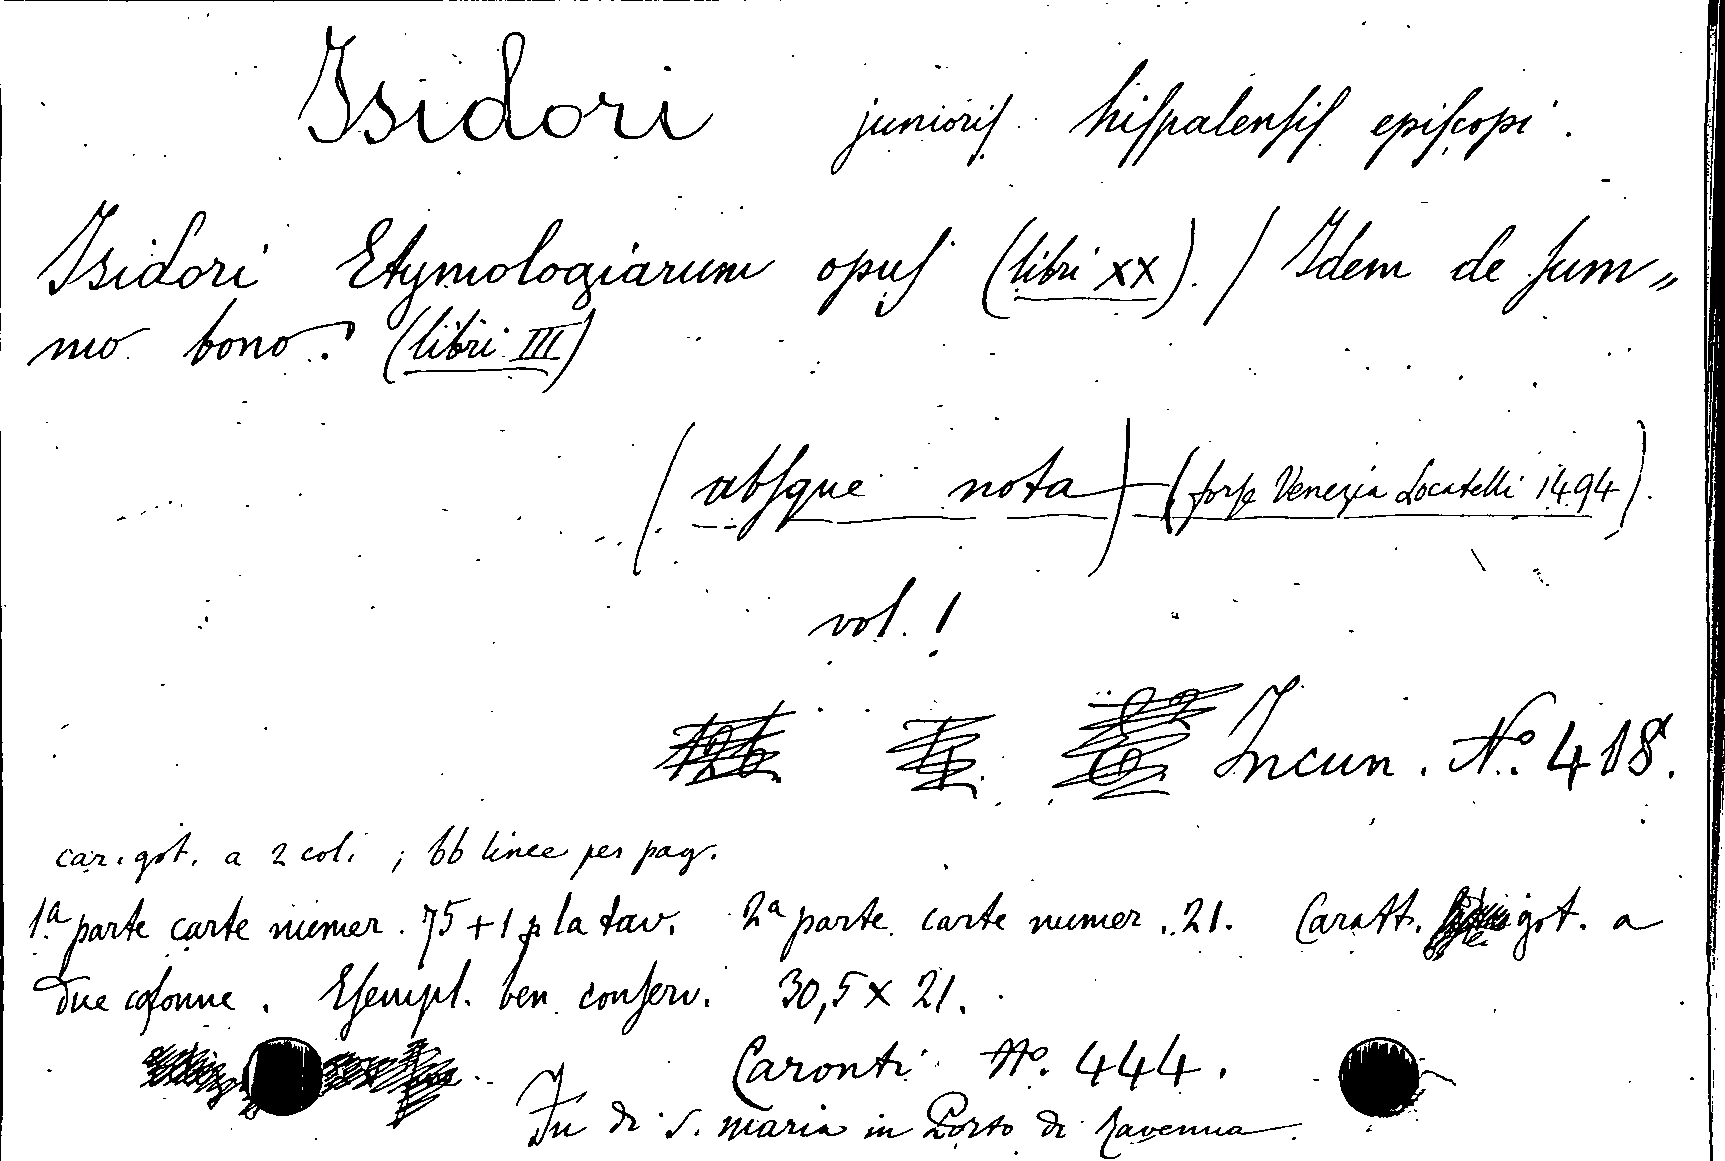 Isidori junioris hispalensis episcopi.
Isidori Etymologiarum opus (libri XX). / Idem de sum=
mo bono. (libri III)
(absque nota) - (forse Venezia Locatelli 1494).
vol. 1
Incun. No. 418.
car. got. a 2 col. ; 66 linee per pag.
1a parte carte numer. 75 + 1 p la tav. 2a parte carte numer. 21. Caratt. got. a
due colonne. Esempl. ben conserv. 30,5 x 21.
Caronti No. 444.
Fu di S. Maria in Porto di Ravenna.